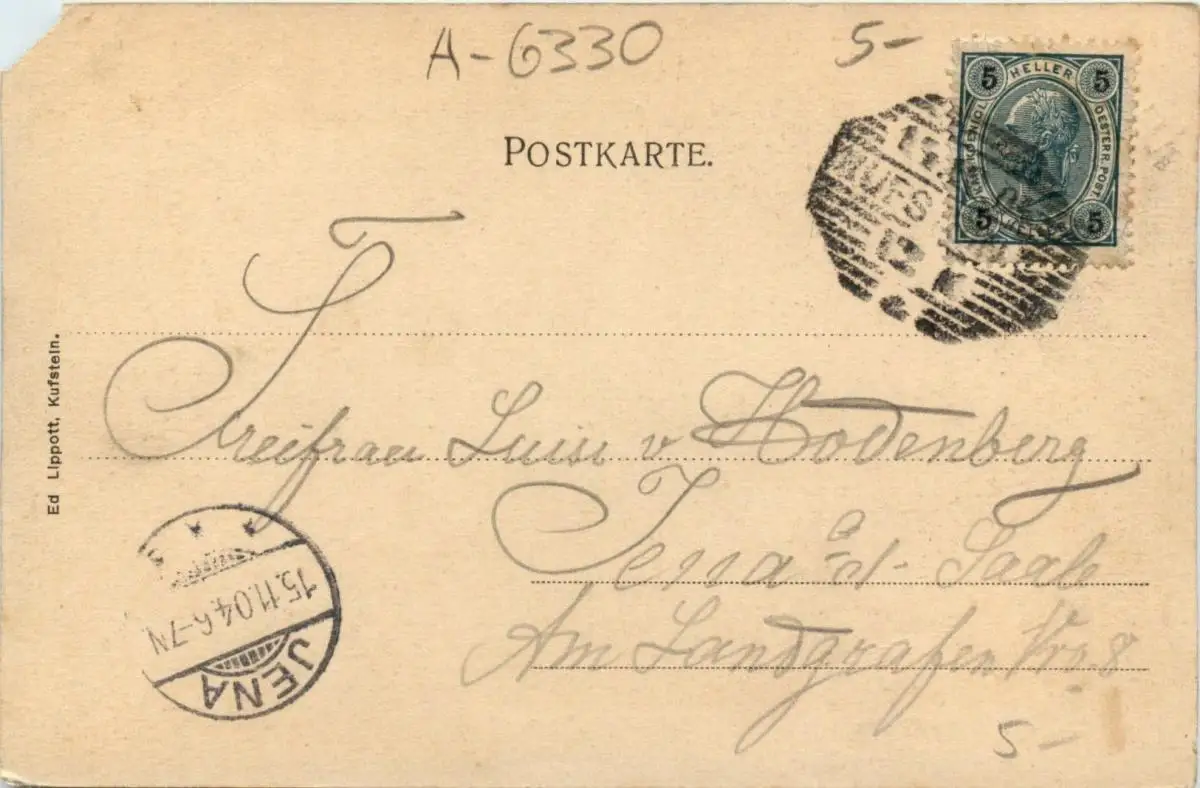 A-6330
5-
5 HELLER 5
KAIS. KOENIGL. OESTERR. POST
5 HELLER 5
POSTKARTE.
KUFS
12
Freifrau Luise v Hodenberg
Jena a/d. Saale
Am Landgrafen No 8
Ed Lippott, Kufstein.
15.11.04.6-7N
JENA
5-